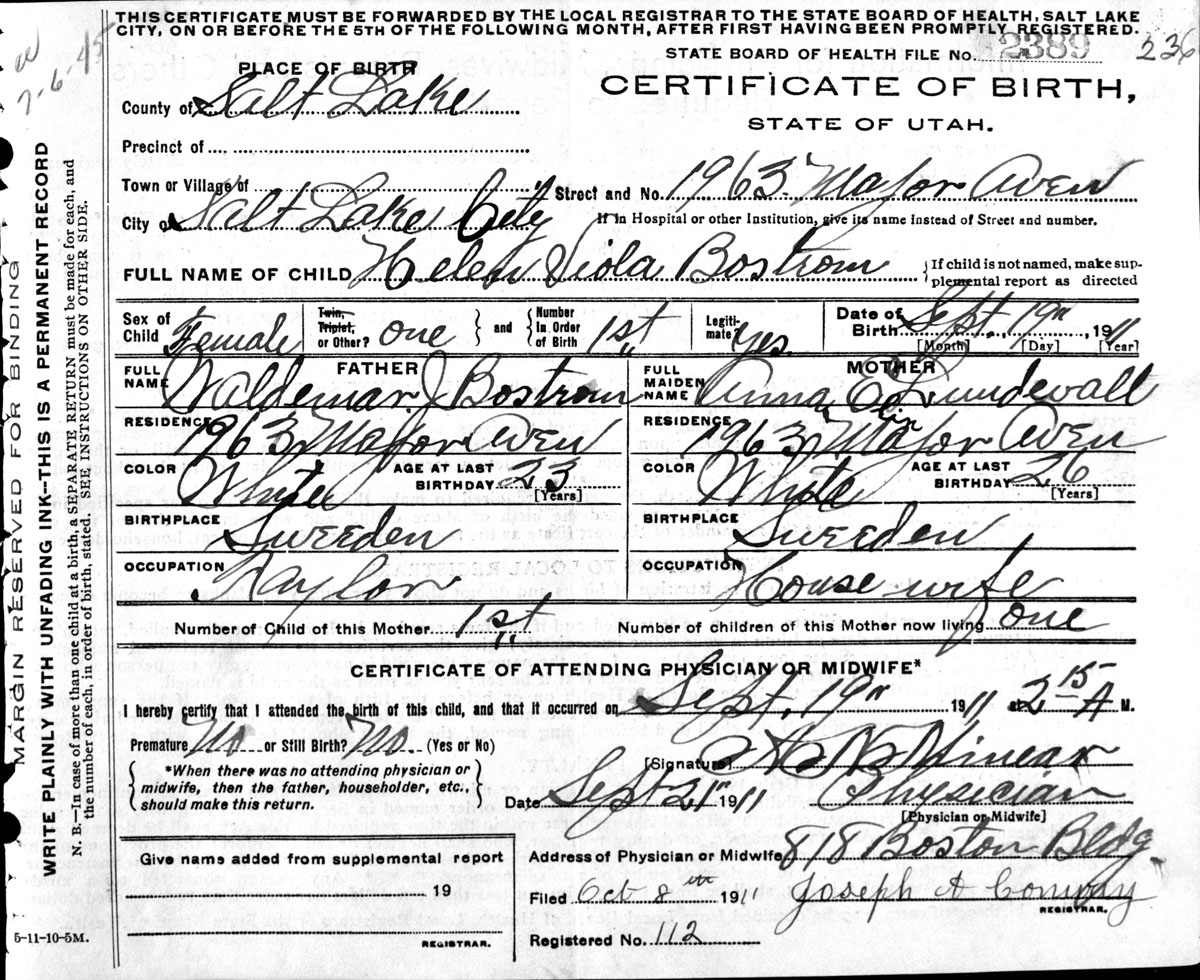 THIS CERTIFICATE MUST BE FORWARDED BY THE LOCAL REGISTRAR TO THE STATE BOARD OF HEALTH, SALT LAKE
CITY, ON OR BEFORE THE 5TH OF THE FOLLOWING MONTH, AFTER FIRST HAVING BEEN PROMPTLY REGISTERED.
STATE BOARD OF HEALTH FILE No. 2389 236
7-6-45
PLACE OF BIRTH
CERTIFICATE OF BIRTH,
STATE OF UTAH.
County of Salt Lake
Precinct of
Town or Village of
Street and No. 1963 Major Aven
City of Salt Lake City
If in Hospital or other Institution, give its name instead of Street and number.
FULL NAME OF CHILD Helen Viola Bostrom
If child is not named, make sup-
plemental report as directed
Sex of Child Female
Twin, Triplet, or Other? one and Number In Order of Birth 1st
Legiti-mate? Yes.
Date of Birth Sept. 19" 1911
[Month] [Day] [Year]
FATHER
FULL NAME Waldemar J Bostrom
RESIDENCE 1963 Major Aven
COLOR White AGE AT LAST BIRTHDAY 23
[Years]
BIRTHPLACE Sweeden
OCCUPATION Taylor
MOTHER
FULL MAIDEN NAME Anna Lundevall
RESIDENCE 1963 Major Aven
COLOR White AGE AT LAST BIRTHDAY 26
[Years]
BIRTHPLACE Sweeden
OCCUPATION House wife
Number of Child of this Mother 1st Number of children of this Mother now living one
CERTIFICATE OF ATTENDING PHYSICIAN OR MIDWIFE*
I hereby certify that I attended the birth of this child, and that it occurred on Sept. 19" 1911 at 2 15 A M.
Premature? No or Still Birth? No (Yes or No)
[Signature]
*When there was no attending physician or
midwife, then the father, householder, etc.,
should make this return.
Date Sept 21" 1911 Physician
[Physician or Midwife]
Give name added from supplemental report
19
REGISTRAR.
Address of Physician or Midwife 818 Boston Bldg
Filed Oct 8th 1911 Joseph A Conway
REGISTRAR.
Registered No. 112
5-11-10-5M.
MARGIN RESERVED FOR BINDING
WRITE PLAINLY WITH UNFADING INK--THIS IS A PERMANENT RECORD
N. B.—In case of more than one child at a birth, a SEPARATE RETURN must be made for each, and
the number of each, in order of birth, stated. SEE INSTRUCTIONS ON OTHER SIDE.